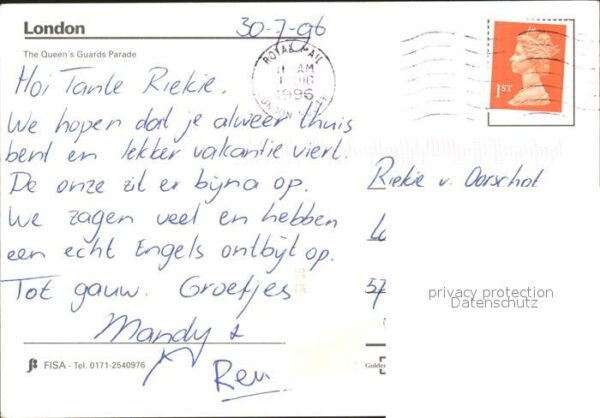 London
30-7-96
The Queen's Guards Parade
ROYAL MAIL
AM
1996
LONDON
1ST
Hoi Tante Riekie.
We hopen dat je alweer thuis
bent en lekker vakantie viert.
De onze zit er bijna op.
We zagen veel en hebben
een echt Engels ontbijt op.
Tot gauw. Groetjes
Mandy &
Riekie v. Oorschot
57
privacy protection
Datenschutz
FISA - Tel. 0171-2540976
Golden